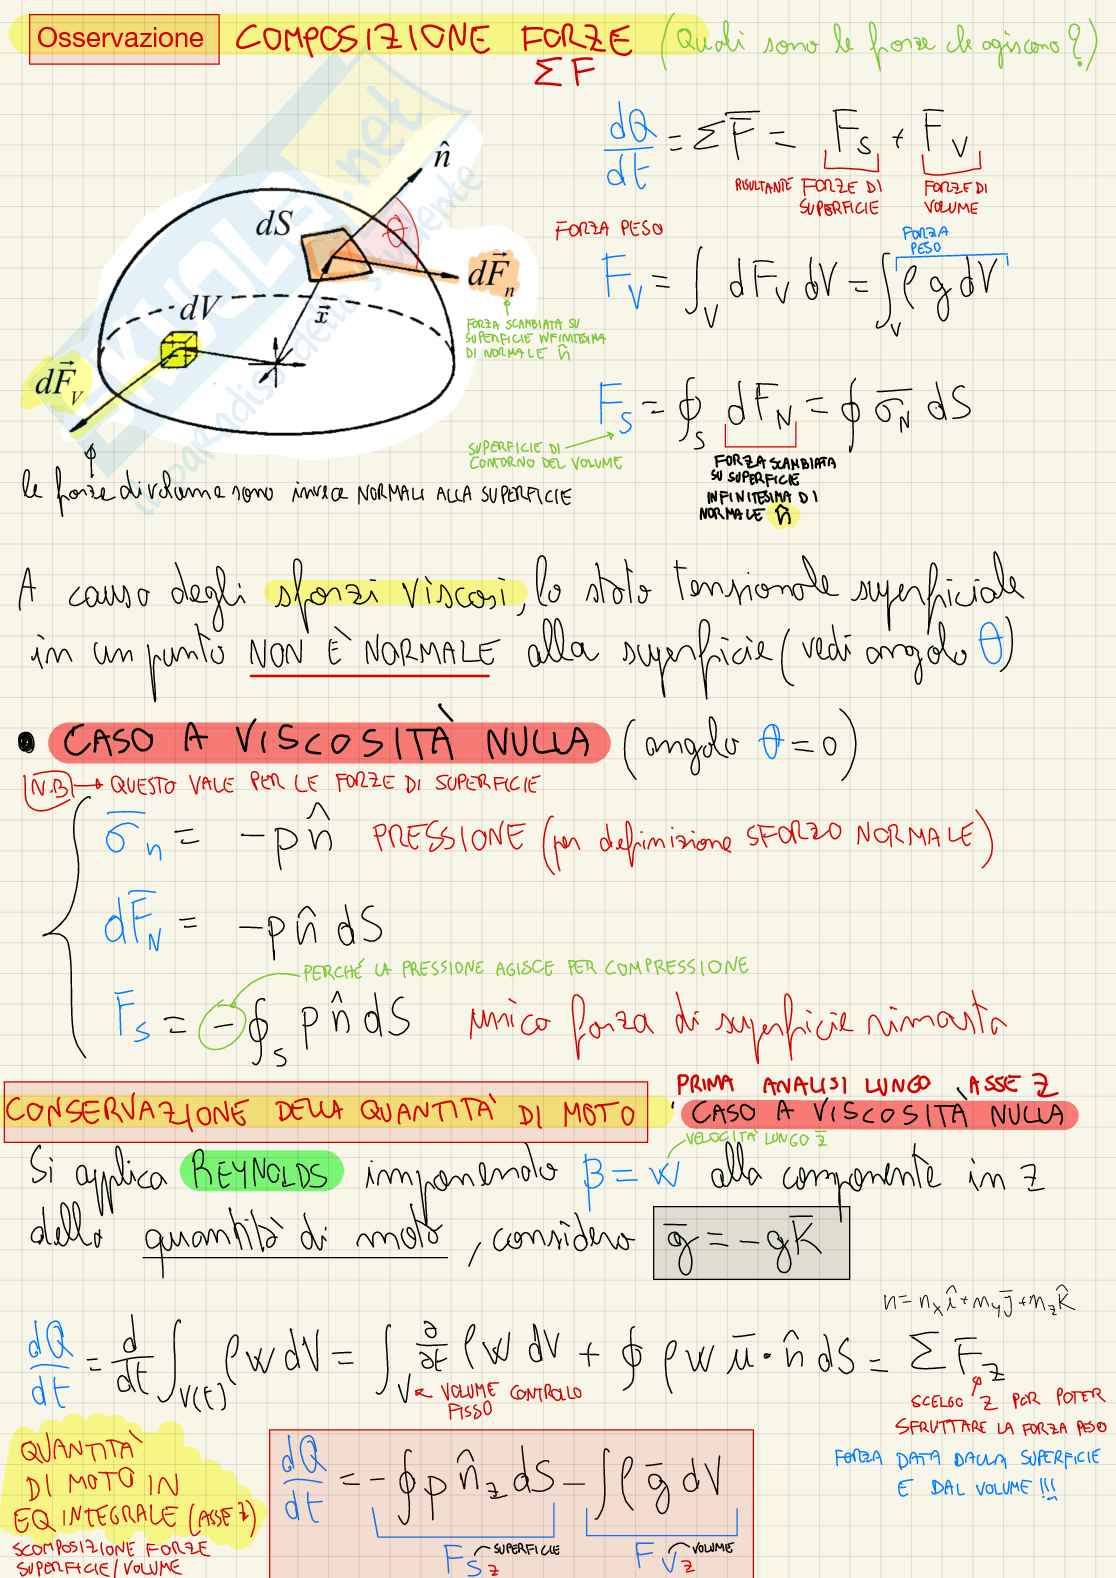 Osservazione COMPOSIZIONE FORZE (Quali sono le forze che agiscono?)
ΣF
n̂
dS
θ
dF⃗n
dV
x⃗
dF⃗V
FORZA SCAMBIATA SU
SUPERFICIE INFINITESIMA
DI NORMALE n̂
dQ/dt = ΣF̅ = F̅s + F̅v
RISULTANTE FORZE DI SUPERFICIE
FORZE DI VOLUME
FORZA PESO
FORZA PESO
F̅v = ∫v dF̅v dV = ∫v ρ g dV
F̅s = ∮s dF̅N = ∮ σ̅N dS
SUPERFICIE DI
CONTORNO DEL VOLUME
FORZA SCAMBIATA
SU SUPERFICIE
INFINITESIMA DI
NORMALE n̂
le forze di volume sono invece NORMALI ALLA SUPERFICIE
A causa degli sforzi viscosi, lo stato tensionale superficiale
in un punto NON È NORMALE alla superficie (vedi angolo θ)
• CASO A VISCOSITÀ NULLA (angolo θ=0)
N.B → QUESTO VALE PER LE FORZE DI SUPERFICIE
σ̅n = -p n̂ PRESSIONE (per definizione SFORZO NORMALE)
dF̅N = -p n̂ dS
PERCHÉ LA PRESSIONE AGISCE PER COMPRESSIONE
F̅s = -∮s p n̂ dS unica forza di superficie rimasta
PRIMA ANALISI LUNGO ASSE Z
CONSERVAZIONE DELLA QUANTITÀ DI MOTO, CASO A VISCOSITÀ NULLA
VELOCITÀ LUNGO z̅
Si applica REYNOLDS imponendo β = w alla componente in z
della quantità di moto, considero g̅ = -g K̅
n = nx î + ny j̅ + nz k̂
dQ/dt = d/dt ∫V(t) ρ w dV = ∫V ∂/∂t ρ w dV + ∮ ρ w u̅ · n̂ dS = ΣF̅z
VOLUME CONTROLLO
FISSO
SCELGO Z PER POTER
SFRUTTARE LA FORZA PESO
FORZA DATA DALLA SUPERFICIE
E DAL VOLUME !!!
QUANTITÀ
DI MOTO IN
EQ INTEGRALE (ASSE Z)
SCOMPOSIZIONE FORZE
SUPERFICIE/VOLUME
dQ/dt = -∮ p n̂z dS - ∫ρ g̅ dV
Fsz SUPERFICIE
Fvz VOLUME